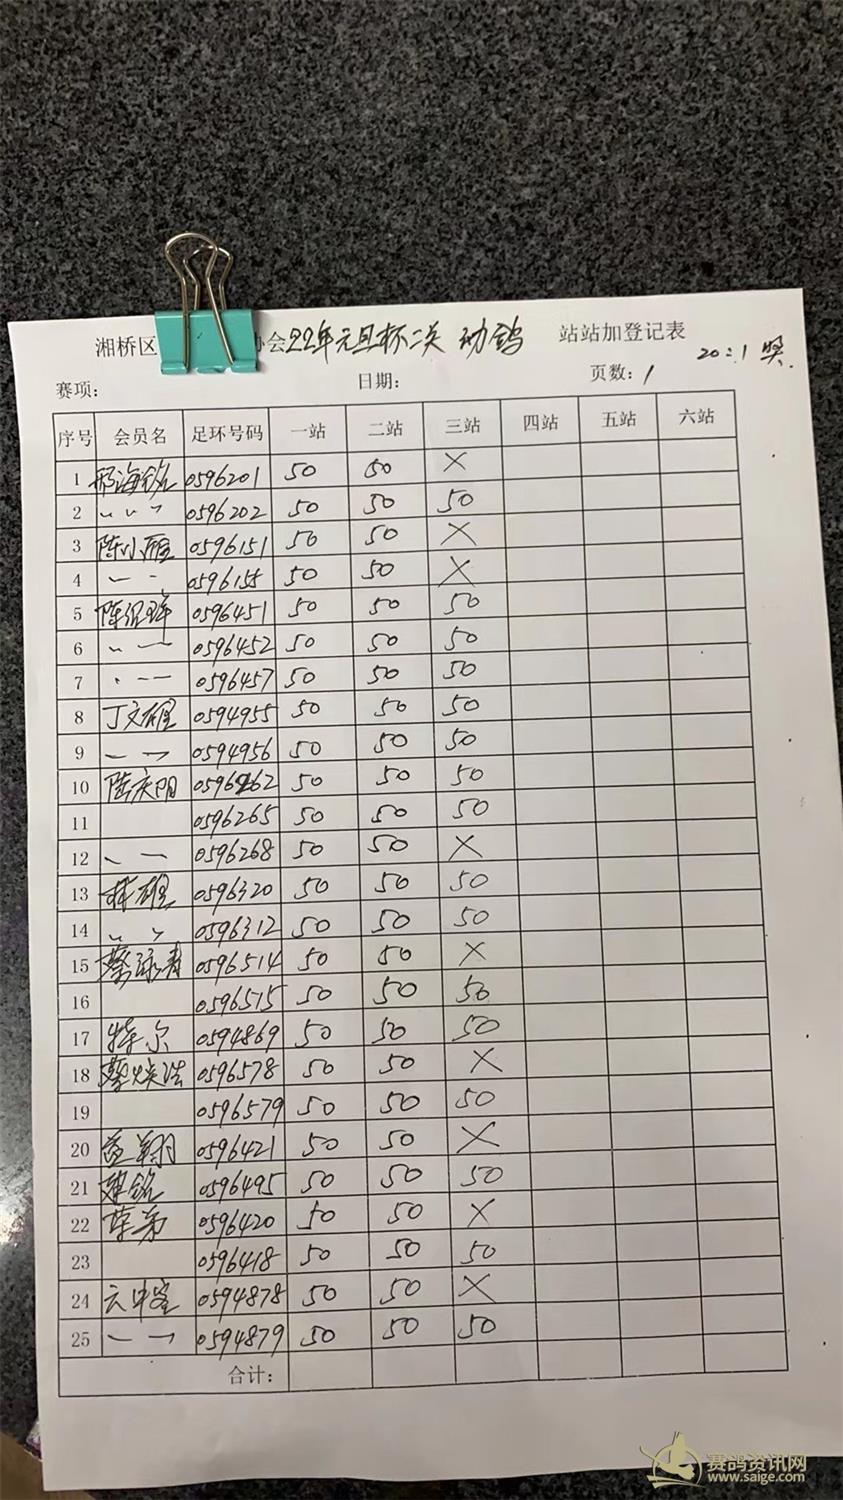 湘桥区 协会22年元旦杯二关 幼鸽 站站加登记表
20:1 奖.
赛项: 日期: 页数: 1
序号 会员名 足环号码 一站 二站 三站 四站 五站 六站
1 海铭 0596201 50 50 ×
2 〃 〃 0596202 50 50 50
3 陈小雁 0596151 50 50 ×
4 〃 0596155 50 50 ×
5 0596451 50 50 50
6 〃 0596452 50 50 50
7 〃 0596457 50 50 50
8 丁文雄 0594955 50 50 50
9 〃 0594956 50 50 50
10 陆庆阳 0596262 50 50 50
11 0596265 50 50 50
12 〃 0596268 50 50 ×
13 林雄 0596320 50 50 50
14 〃 〃 0596312 50 50 50
15 蔡泳青 0596514 50 50 ×
16 0596515 50 50 50
17 特尔 0594869 50 50 50
18 蔡焕浩 0596578 50 50 ×
19 0596579 50 50 50
20 翔 0596421 50 50 ×
21 建铭 0596495 50 50 50
22 0596420 50 50 ×
23 0596418 50 50 50
24 0594878 50 50 ×
25 〃 0594879 50 50 50
合计:
赛鸽资讯网
www.saige.com